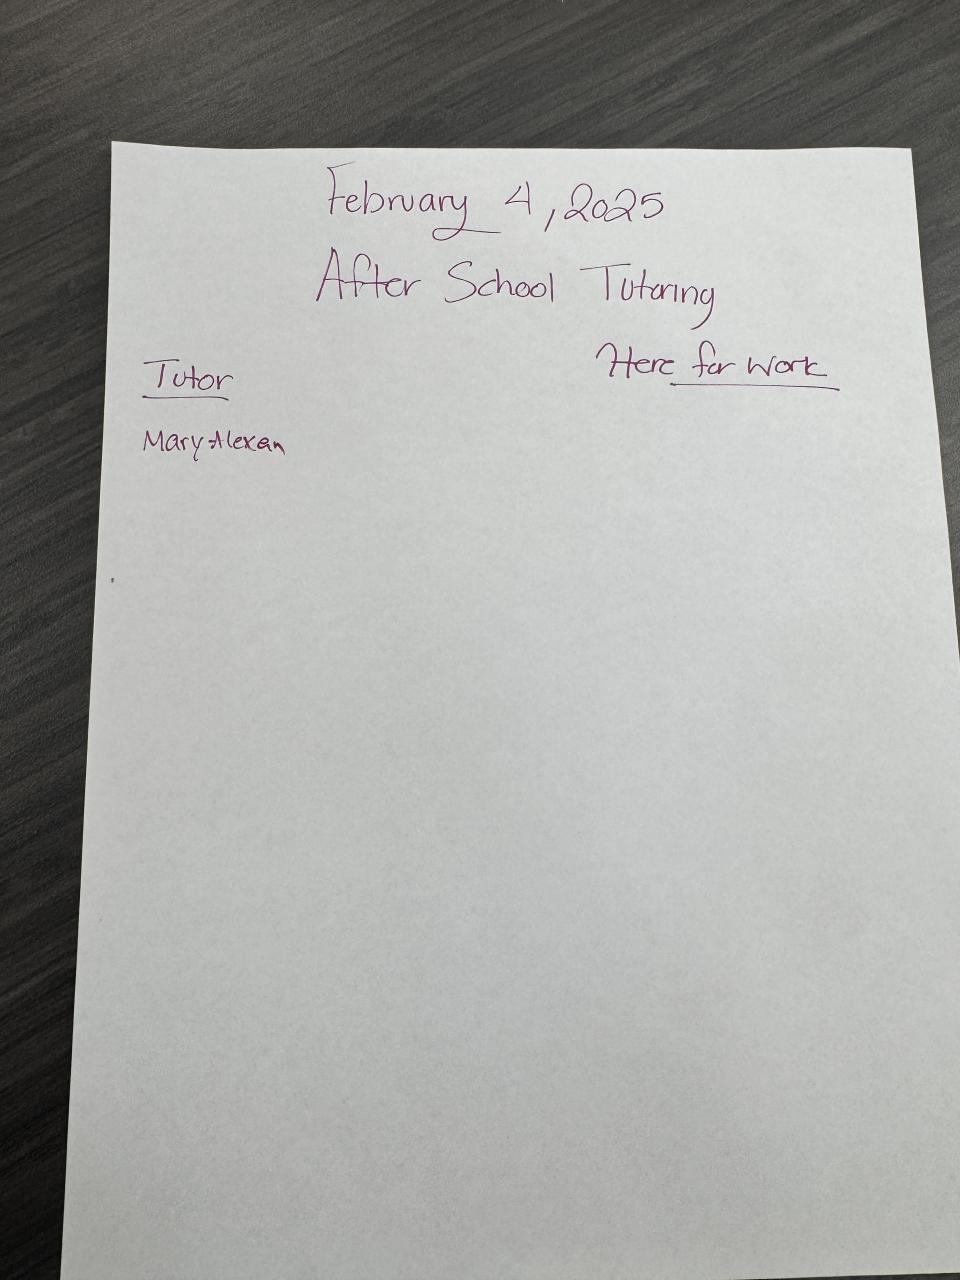 February 4, 2025
After School Tutoring
Tutor
Here for Work
Mary Alexan